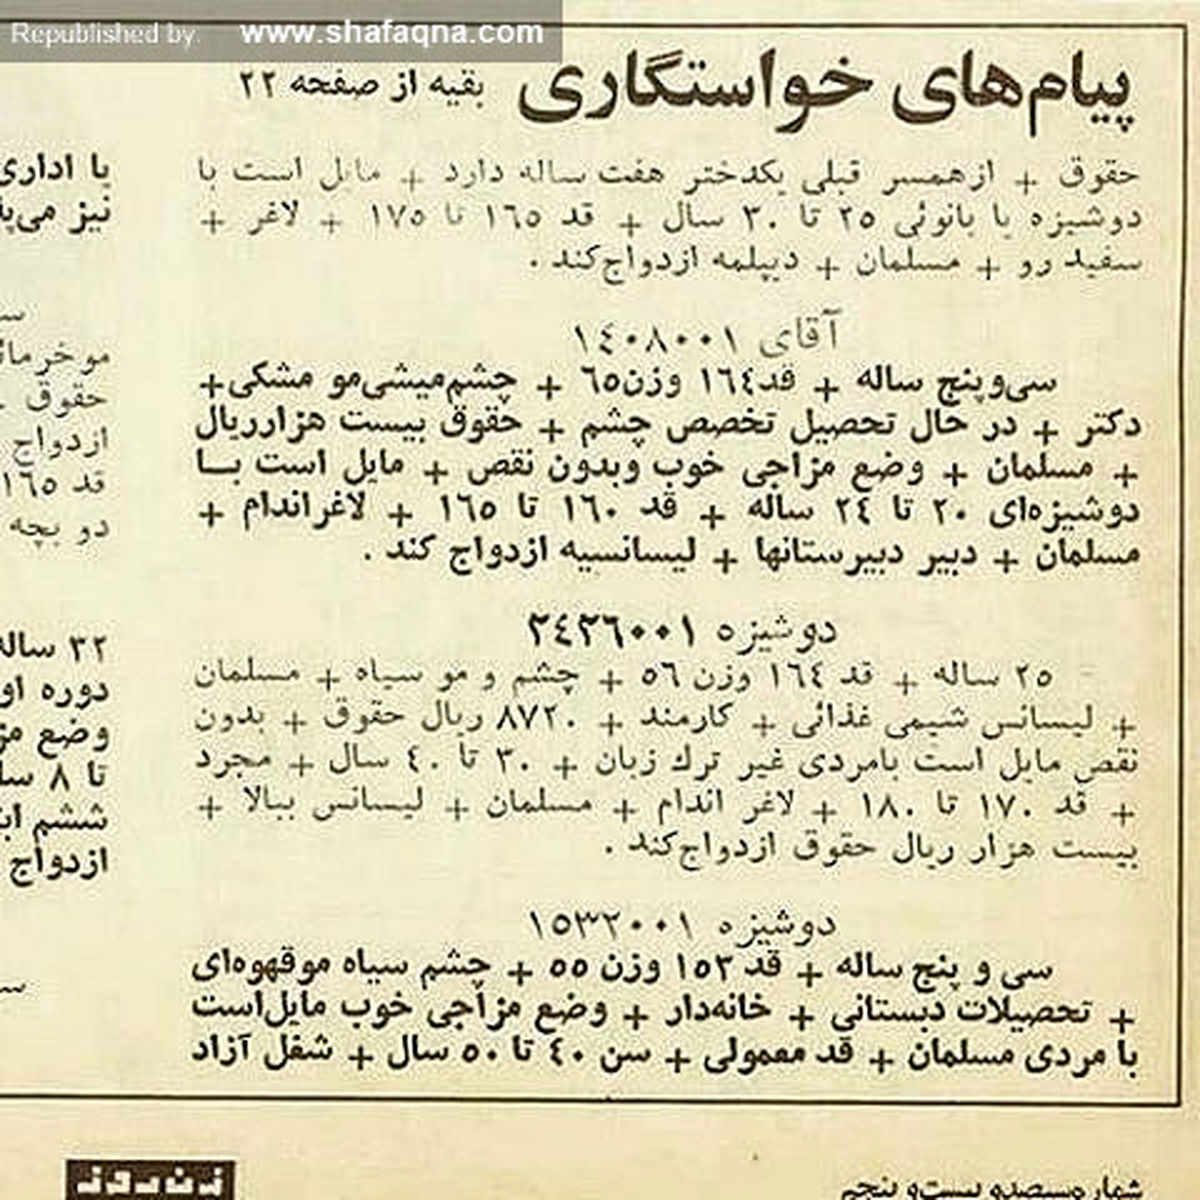 Republished by: www.shafaqna.com
پیام‌های خواستگاری بقیه از صفحه ۲۲
حقوق + از همسر قبلی یکدختر هفت ساله دارد + مایل است با
دوشیزه یا بانوئی ۲۵ تا ۳۰ سال + قد ۱۶۵ تا ۱۷۵ + لاغر +
سفید رو + مسلمان + دیپلمه ازدواج‌کند .
آقای ۱۴۰۸۰۰۱
سی‌وپنج ساله + قد۱۶۴ وزن۶۵ + چشم‌میشی‌مو مشکی+
دکتر + در حال تحصیل تخصص چشم + حقوق بیست هزارریال
+ مسلمان + وضع مزاجی خوب وبدون نقص + مایل است بـا
دوشیزه‌ای ۲۰ تا ۲۴ ساله + قد ۱۶۰ تا ۱۶۵ + لاغراندام +
مسلمان + دبیر دبیرستانها + لیسانسیه ازدواج کند .
دوشیزه ۲۴۲۶۰۰۱
۲۵ ساله + قد ۱۶۴ وزن ۵۶ + چشم و مو سیاه + مسلمان
+ لیسانس شیمی غذائی + کارمند + ۸۷۲۰ ریال حقوق + بدون
نقص مایل است بامردی غیر ترك زبان + ۳۰ تا ۴۰ سال + مجرد
+ قد ۱۷۰ تا ۱۸۰ + لاغر اندام + مسلمان + لیسانس ببالا +
بیست هزار ریال حقوق ازدواج‌کند .
دوشیزه ۱۵۳۲۰۰۱
سی و پنج ساله + قد ۱۵۳ وزن ۵۵ + چشم سیاه موقهوه‌ای
+ تحصیلات دبستانی + خانه‌دار + وضع مزاجی خوب مایل‌است
با مردی مسلمان + قد معمولی + سن ۴۰ تا ۵۰ سال + شغل آزاد
یا اداری
نیز
حقوق
ازدواج
قد ۱۶۵
دو بچه
۳۲ ساله
دوره
وضع
تا ۸
ششم
ازدواج
شماره‌سیصدو بیست‌و پنجم
زن‌روز